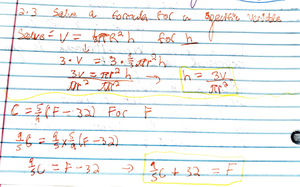 2.3 Solve a formula for a specific variable
Solve: V = ⅓πR²h for h
3·V = 3·⅓πr²h
3V/πr² = πr²h/πr² → h = 3V/πr²
C = 5/9(F-32) For F
9/5 C = 9/5 × 5/9 (F-32)
9/5 C = F-32 → 9/5 C + 32 = F